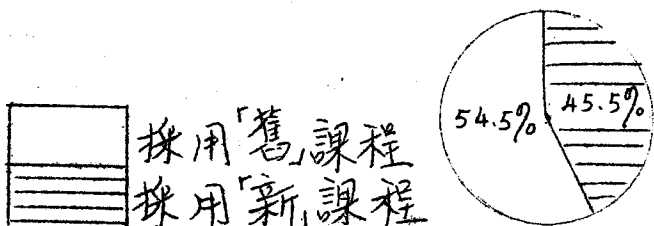 採用「舊」課程
採用「新」課程
54.5%
45.5%